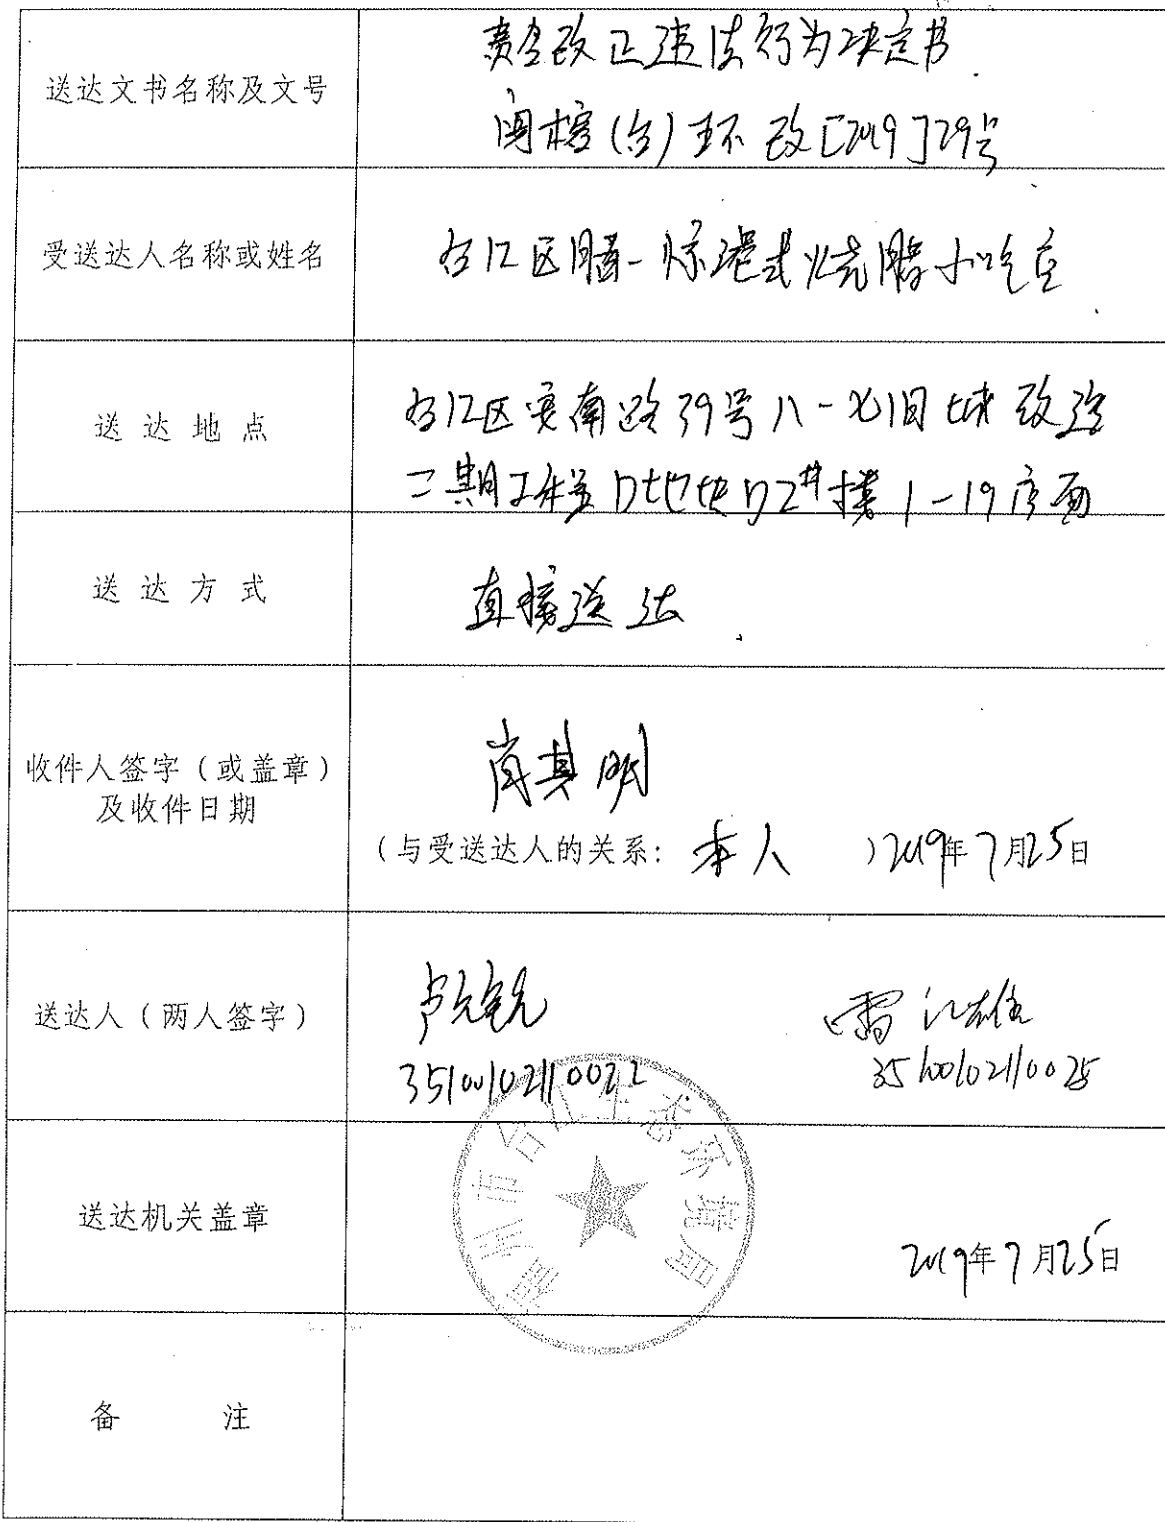 送达文书名称及文号
责令改正违法行为决定书
闽榕(台)环改[2019]29号
受送达人名称或姓名
台江区腊一惊港式烧腊小吃店
送达地点
台江区安南路39号八一七旧城改造
二期工程D地块D2#楼1-19店面
送达方式
直接送达
收件人签字(或盖章)
及收件日期
肖其明
(与受送达人的关系: 本人 )2019年7月25日
送达人(两人签字)
35100102110022
35100102110025
送达机关盖章
福州市台江生态环境局
2019年7月25日
备注